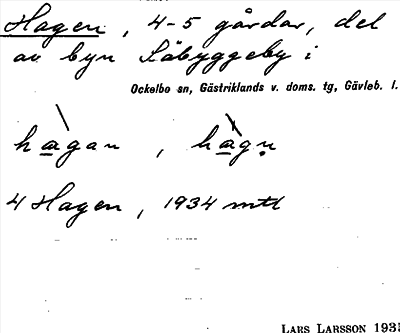 Hagen, 4-5 gårdar, del
av byn Säbyggeby i
Ockelbo sn, Gästriklands v. doms. tg, Gävleb. l.
hagan, hagn
4 Hagen, 1934 mtl
LARS LARSSON 193